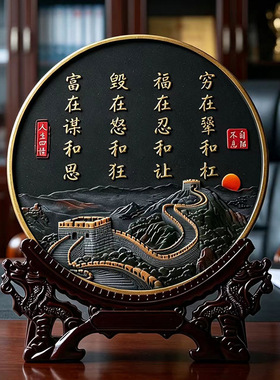 自强不息
穷在犟和杠
福在忍和让
毁在怒和狂
富在谋和思